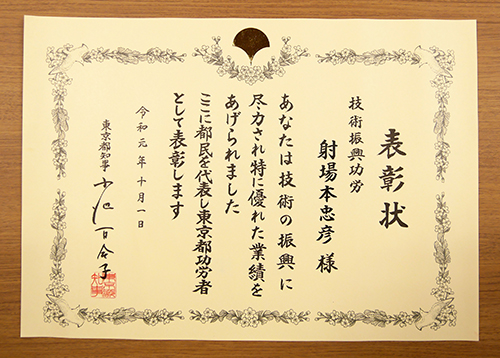 表彰状
技術振興功労
射場本忠彦 様
あなたは技術の振興に
尽力され特に優れた業績を
あげられました
ここに都民を代表し東京都功労者
として表彰します
令和元年十月一日
東京都知事 小池百合子